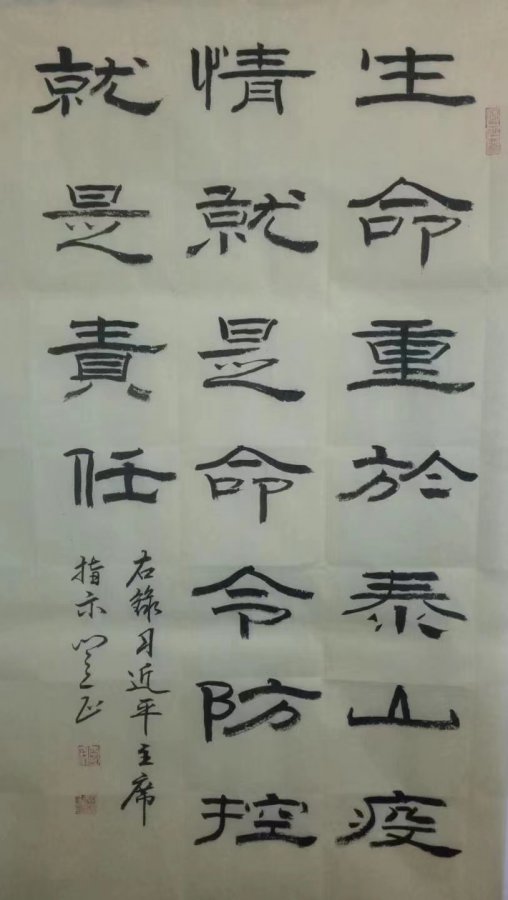 生命重於泰山疫
情就是命令防控
就是責任
右錄习近平主席
指示